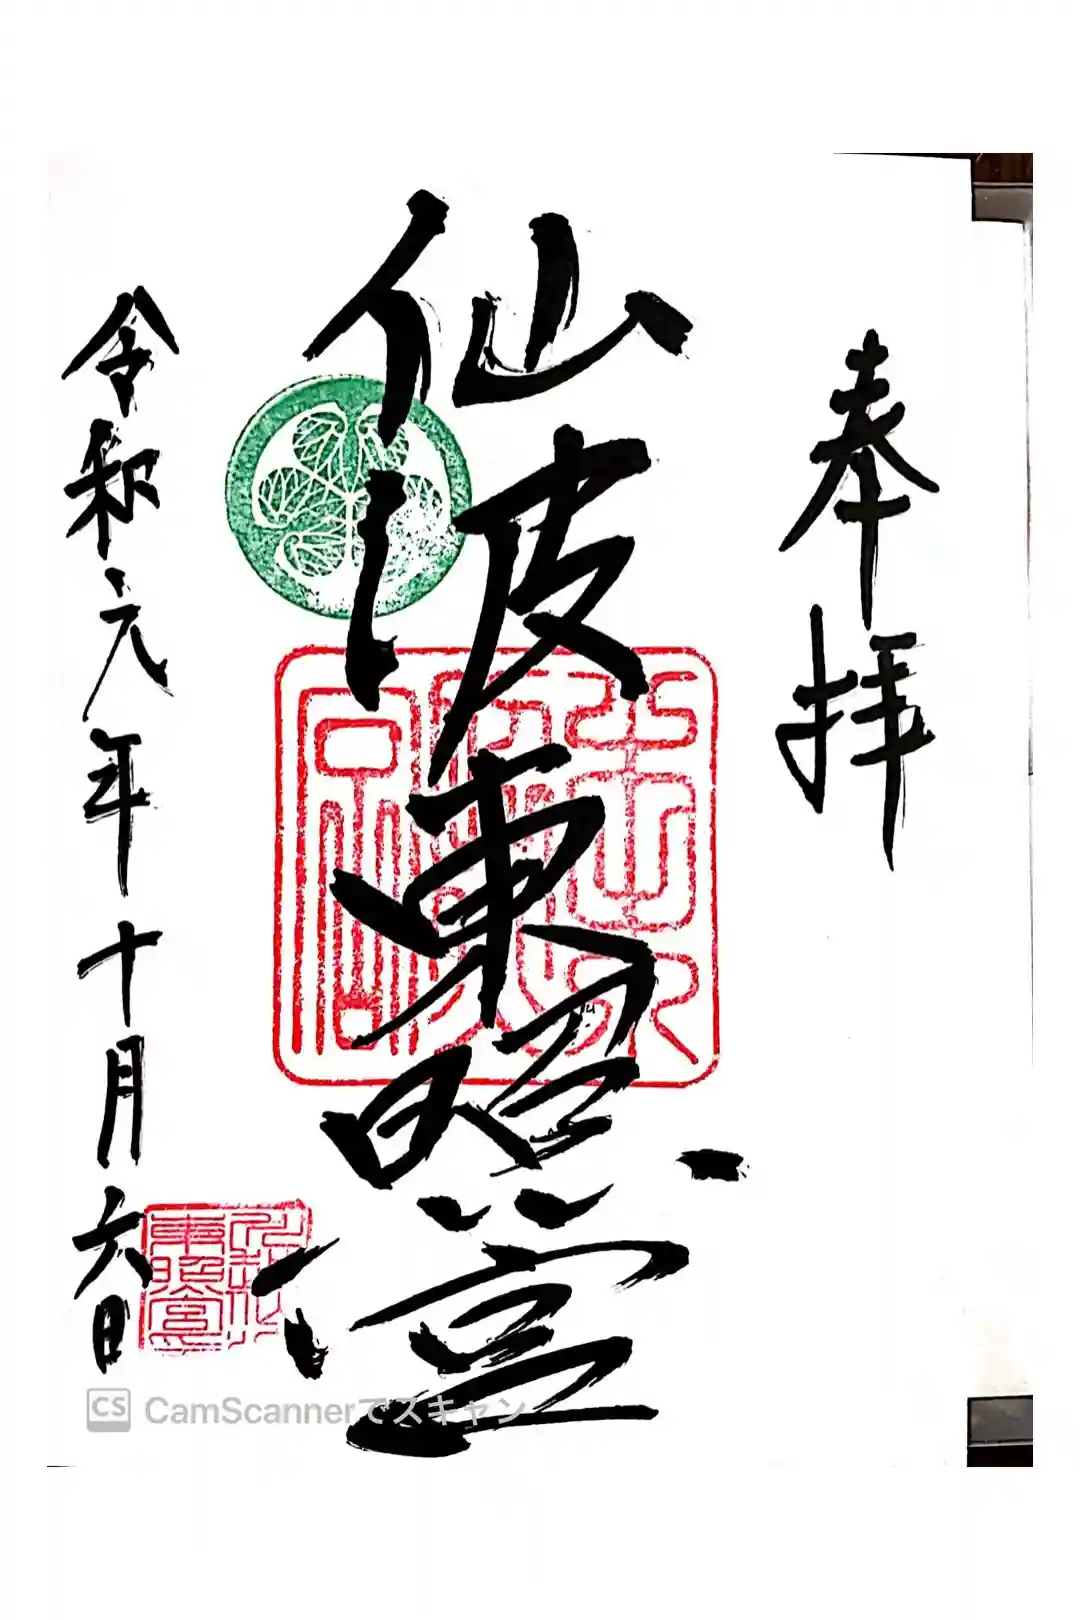 奉拝
仙波東照宮
令和元年十月六日
CS CamScannerでスキャン